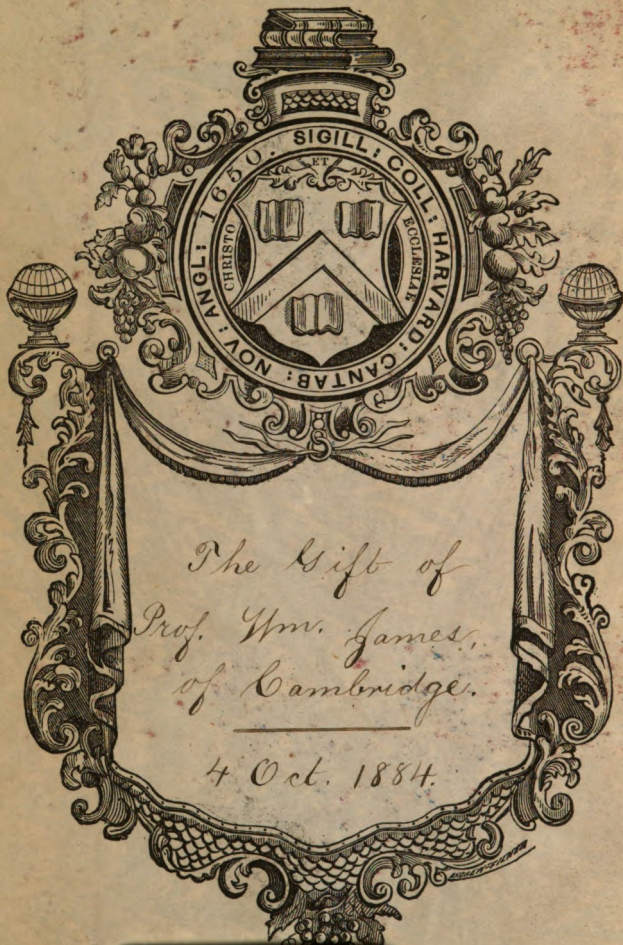 SIGILL: COLL: HARVARD: CANTAB: NOV: ANGL: 1650.
CHRISTO
ET
ECCLESIAE
The Gift of
Prof. Wm. James,
of Cambridge.
4 Oct. 1884.